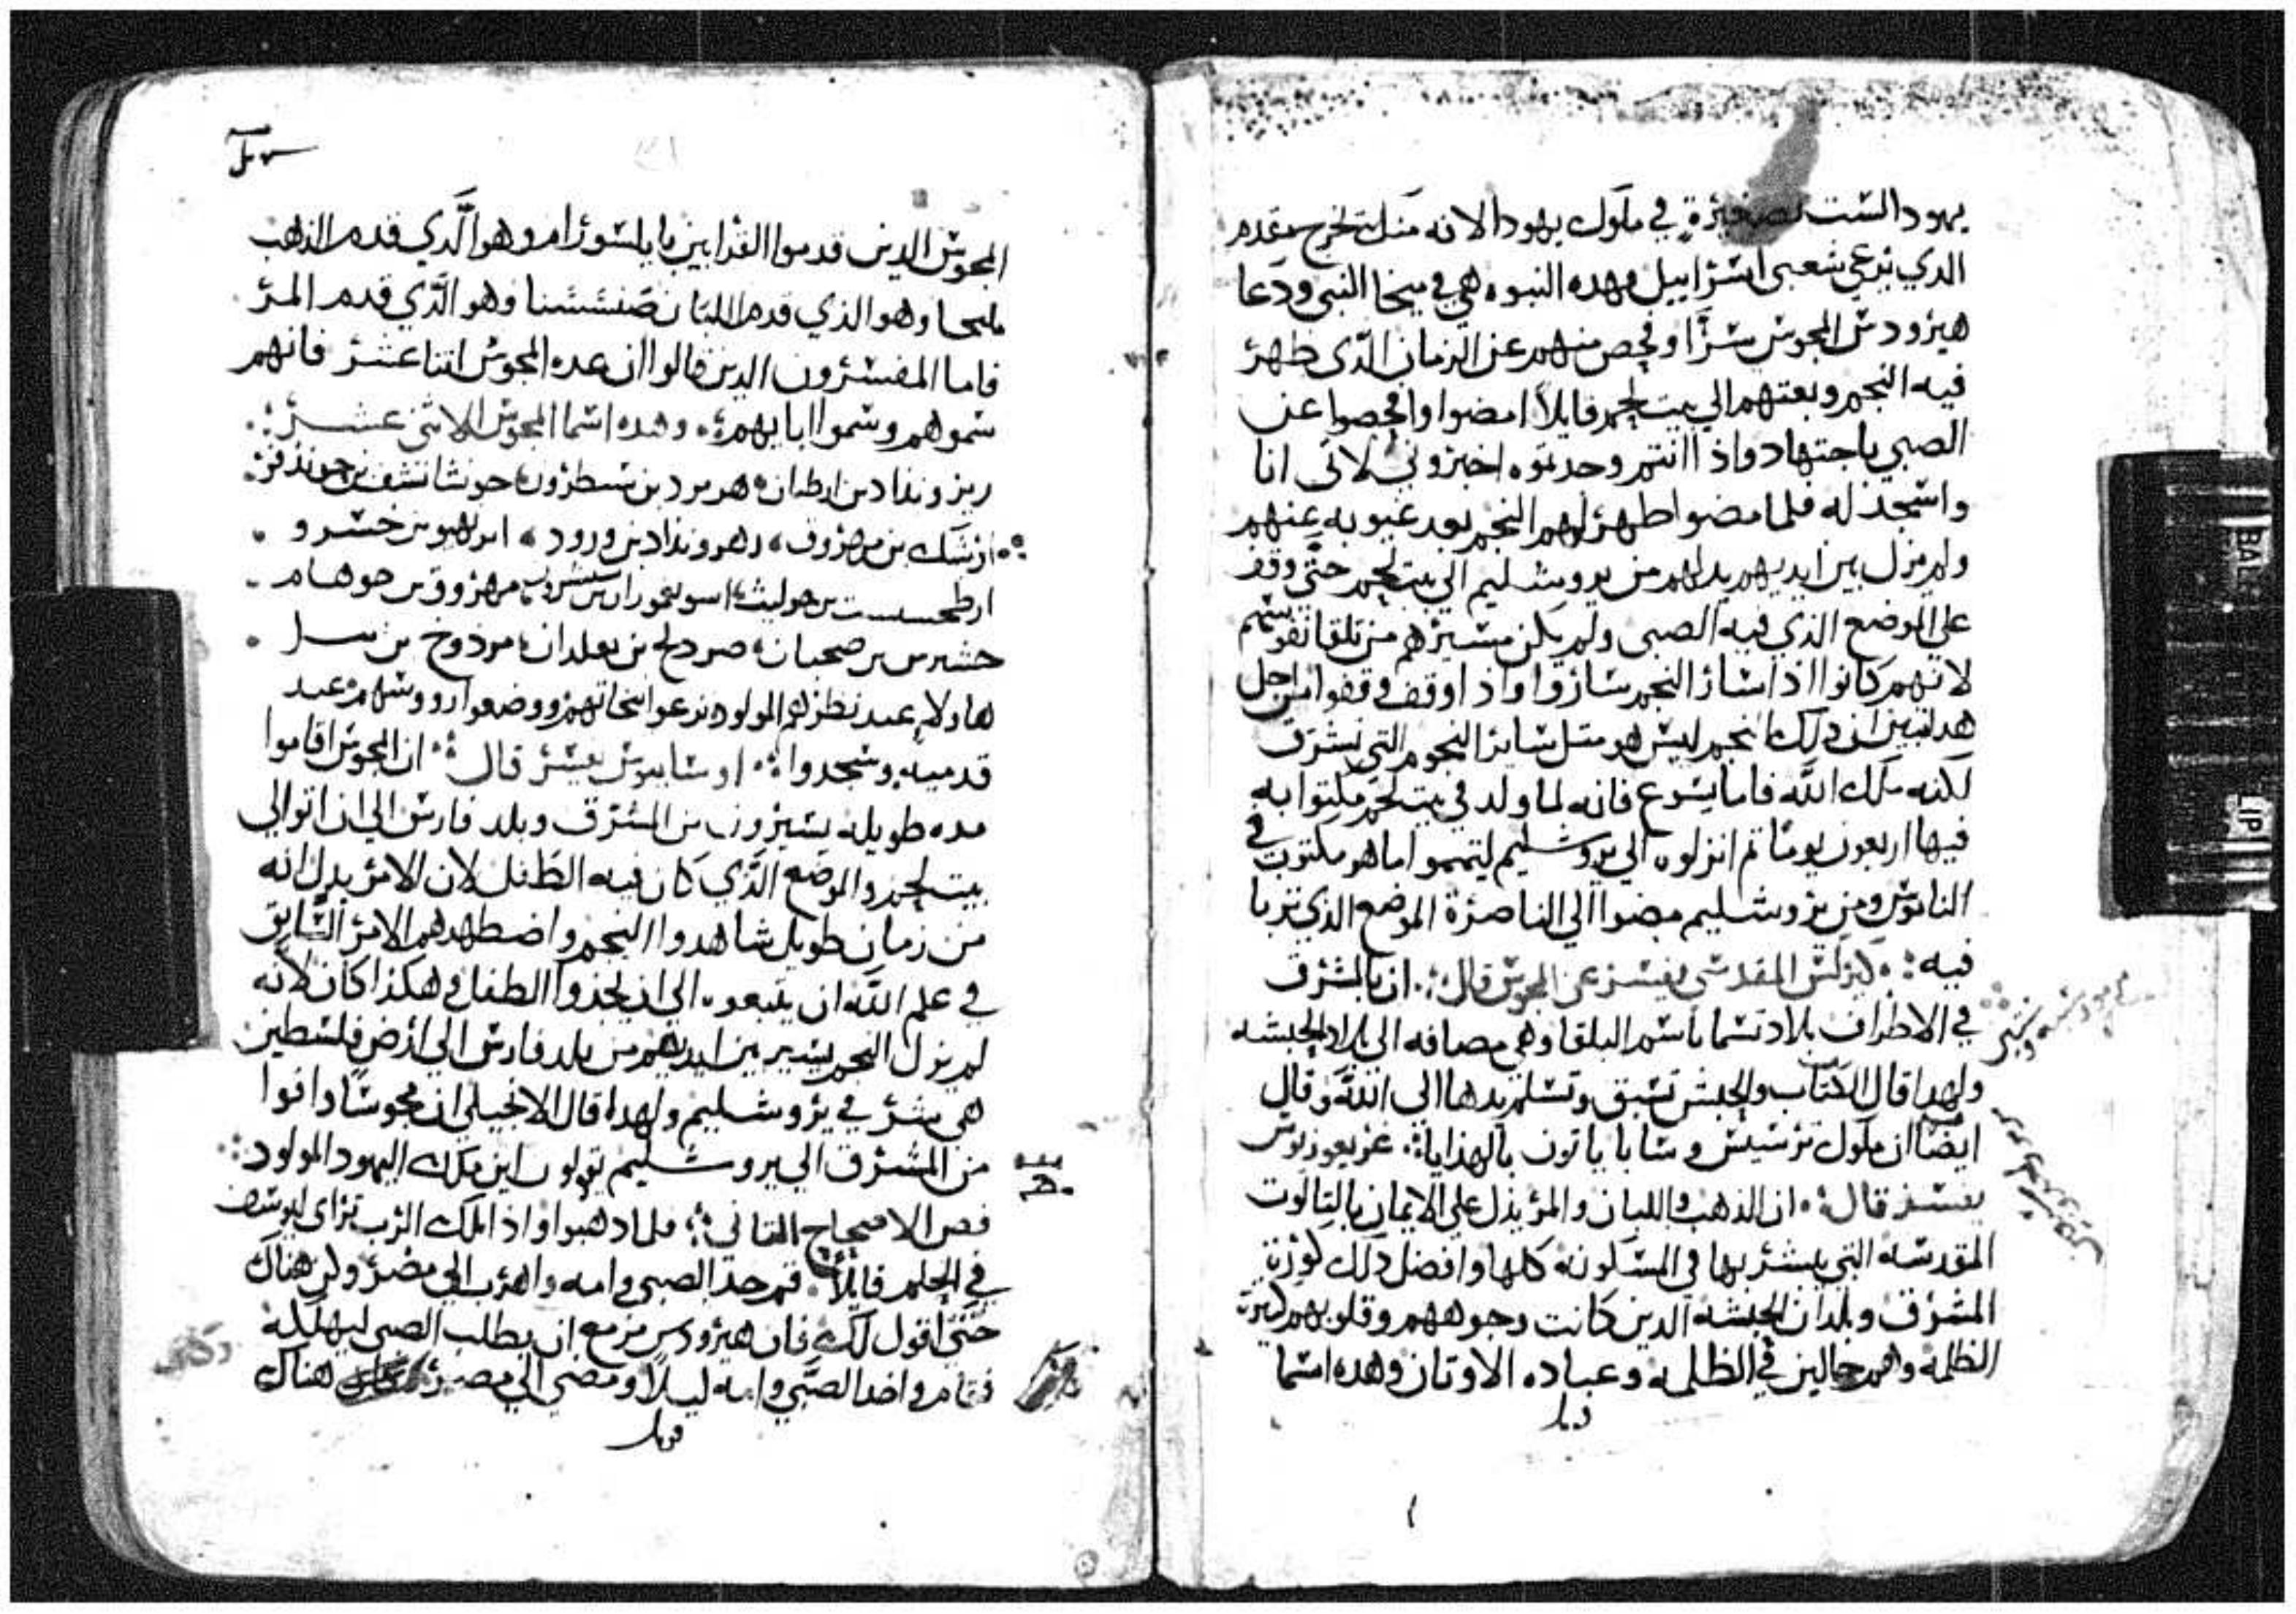 يهودا لست بصغيرة في ملوك يهودا لانه منك يخرج مقدم
الدي يرعي شعبي اسراييل وهده النبوه هي في ميخا النبي ودعا
هيرودس المجوس سرًا وفحص منهم عن الزمان الدى ظهر
فيه النجم وبعتهم الي بيت لحم قايلاً امضوا وافحصوا عن
الصبي باجتهاد واذا انتم وجدتموه اخبروني لاتى انا
واسجد له فلما مضوا ظهر لهم النجم بعد غيوبه عنهم
ولم يزل بين ايديهم يدلهم من يروشليم الي بيت لحم حتي وقف
على الموضع الذي فيه الصبى ولم يكن مسيرهم من تلقا نفوسهم
لانهم كانوا اذا سار النجم ساروا واذا وقف وقفوا من اجل
هدا تبين ان دلك النجم ليس هو متل ساير النجوم التي تشرق
لكنه ملاك الله فاما يسوع فانه لما ولد في بيت لحم مكتوا به
فيها اربعون يومًا تم انزلوه الي يروشليم ليتمموا ما هو مكتوب في
الناموس ومن يروشليم مضوا الي الناصرة الموضع الذي تربا
فيه ⁘ كيرلس المقدسي يفسر عن المجوس قال ⁘ ان بالمشرق
في الاطراف بلاد تسما باسم البلقا وهي مصافه الي بلاد الحبشه
ولهدا قال الكتاب والحبش تسبق وتسلم يدها الى الله وقال
ايضًا ان ملوك ترسيس وسابا ياتون بالهدايا ⁘ غريغوريوس
يفسر قال ⁘ ان الدهب واللبان والمر يدل علي الايمان بالتالوت
المقدسه التي يبشر بها في المسكونه كلها وافضل دلك كورة
المشرق وبلدان الحبشه الدين كانت وجوههم وقلوبهم كيرة
الظلمه وهم جالين في الظلمه وعباده الاوتان وهده اسما
المجوس الدين قدموا القرابين بايلشورام وهو الذي قدم الذهب
مليحا وهو الذي قدم اللبان صنششنا وهو الذي قدم المر
فاما المفسرون الدين قالوا ان عده المجوس اتنا عشر فانهم
سموهم وسموا ابايهم وهده اسما المجوس الاثني عشر ⁘
ريزوندا دبن ارطبان هرمرد بن سطرون
ارشك بن مهروف رهروندادبن ورود بن خسرو
بن حوليث مهروق بن حوهام
بن صحبان صردلح بن بعلدان مردوخ بن
هاولاي عند نظرهم المولود نزعوا تيجانهم ووضعوا رووسهم عند
قدميه وسجدوا ⁘ اوسابيوس يفسر قال ⁘ ان المجوس اقاموا
مده طويله يسيرون من المشرق وبلد فارس الي ان اتوا الي
بيت لحم والموضع الذي كان فيه الطفل لان الامر يدل انه
من زمان طويل شاهدوا النجم واضطهدهم الامر السابق
في علم الله ان يتبعوه الى ان يجدوا الطفل وهكذا كان لانه
لم يزل النجم يسير بين ايديهم من بلد فارس الي ارض فلسطين
هي بشر في يروشليم ولهدا قال الانجيلي ان مجوسا وافوا
من المشرق الي يروشليم يقولون اين ملك اليهود المولود ⁘
فص الاصحاح التاني ⁘ فلما دهبوا واذا ملك الرب تراى ليوسف
في الحلم قايلاً قم خد الصبي وامه واهرب الي مصر وكن هناك
حتي اقول لك فان هيرودس مزمع ان يطلب الصبى ليهلكه
فقام واخد الصبي وامه ليلاً ومضي الي مصر هناك